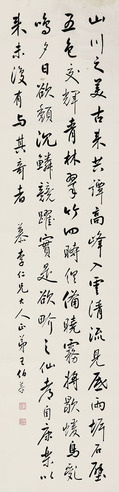 山川之美古来共譚高峰入雲清流見底兩岸石壁
五色交輝青林翠竹四時俱備曉霧將歇猨鳥亂
鳴夕日欲頹沉鱗競躍實是欲界之仙都自康樂以
来未復有与其奇者 李仁兄大人正 弟王伯恭